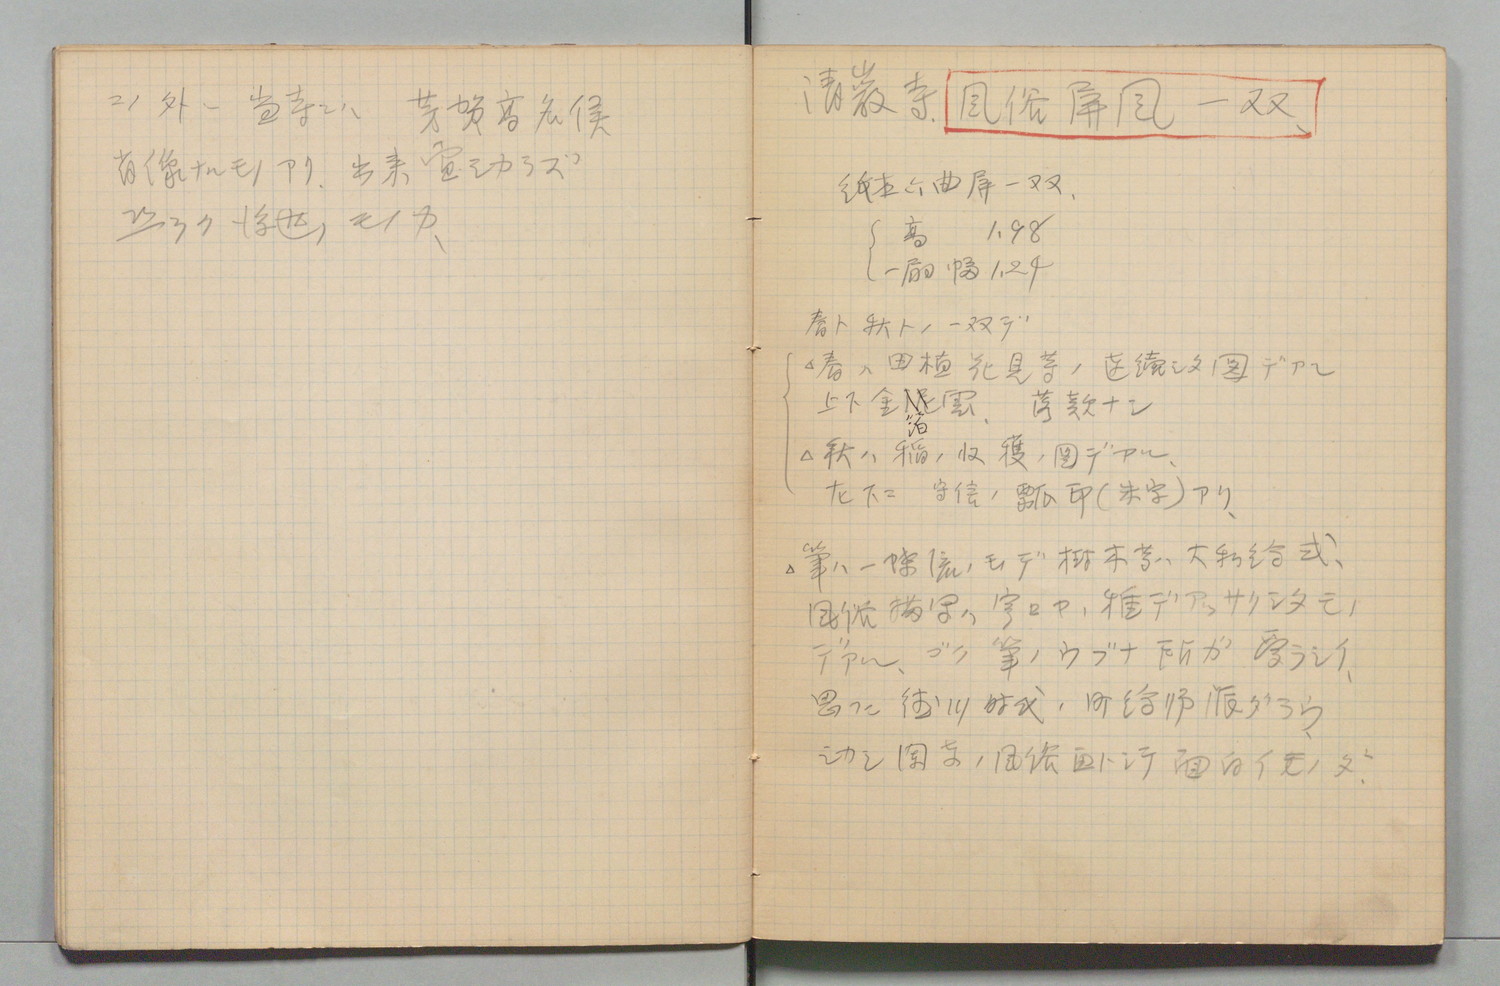 コノ外ニ当寺ニハ 芳賀高名候
肖像ナルモノアリ、出来 宜シカラズ
恐ラク 後世ノモノカ、
清巌寺 風俗屏風一双、
紙本六曲屏一双、
高 1.98
一扇幅 1.24
春ト秋トノ一双デ
△春ハ田植花見等ノ連続シタ図デアル
上下金箔雲、 落款ナシ
△秋ハ稲ノ収穫ノ図デアル、
左下ニ 守信ノ瓢印(朱字)アリ、
△筆ハ一蝶流ノモノデ樹木等ハ大和絵式、
風俗描写ハ寧ロ デアッサリシタモノ
デアル、ゴク筆ノウブナ所ガ愛ラシイ、
思フニ徳川時代ノ町絵師派ダラウ、
シカシ図等ノ風俗画トシテ面白イモノダ、